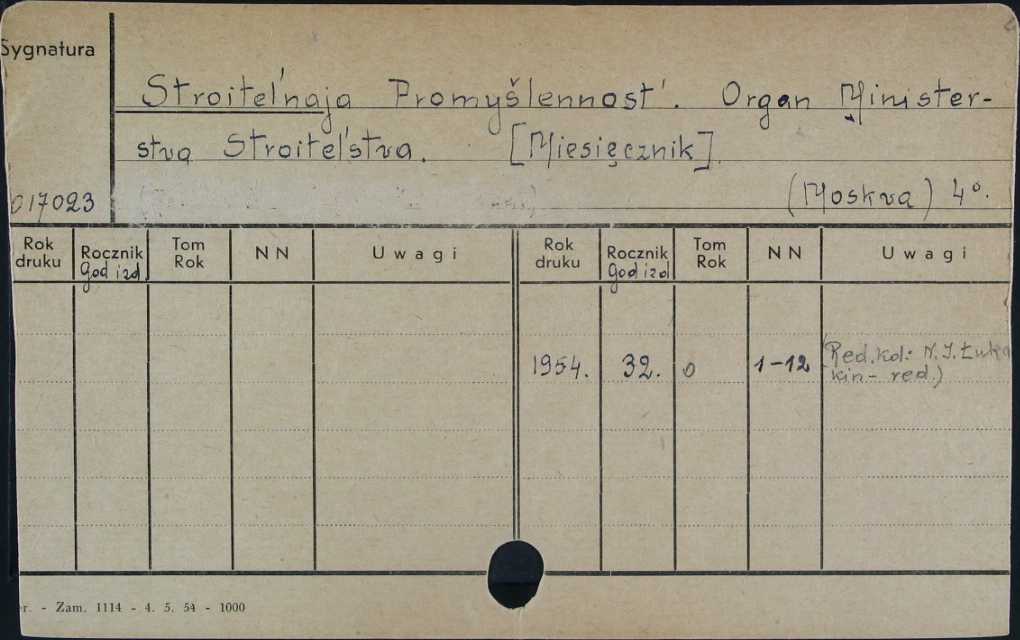 Sygnatura
Stroitel'naja Promyšlennost'. Organ Minister-
stva Stroitel'stva. [Miesięcznik]
017023 (Moskva) 4°.
Rok druku Rocznik God izd. Tom Rok NN Uwagi Rok druku Rocznik God izd Tom Rok NN Uwagi
1954. 32. 0 1-12 (Red. kol: N. I. Łuka
kin - red.)
r. - Zam. 1114 - 4. 5. 54 - 1000